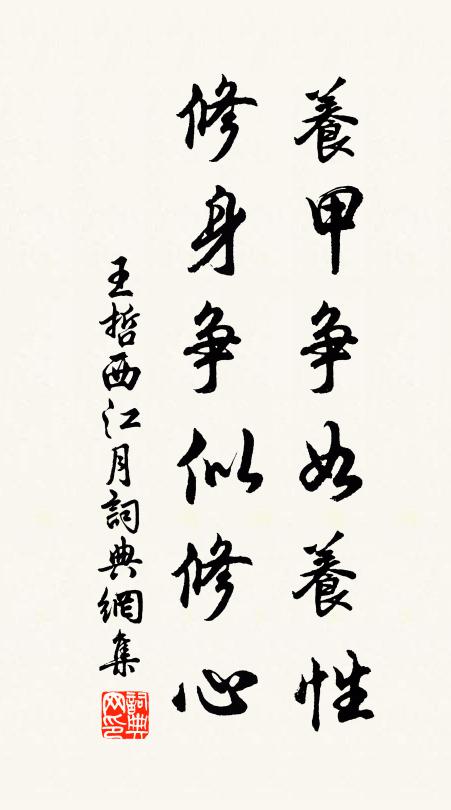 養甲爭如養性
修身爭似修心
王哲西江月詞典網集
詞典網印